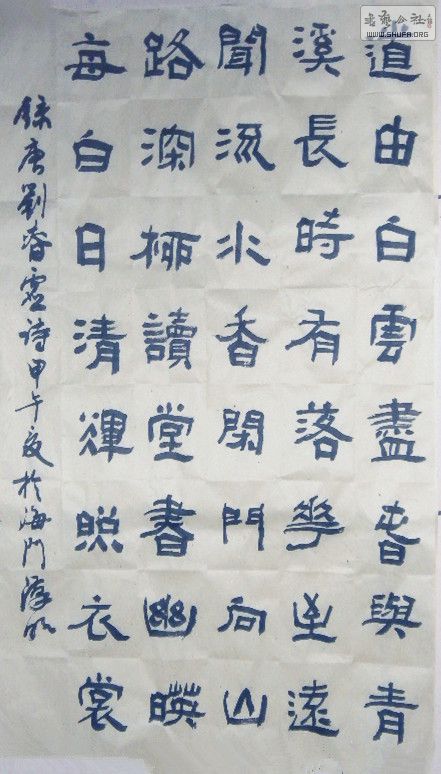 道由白雲盡春與青
溪長時有落花至遠
聞流水香閑門向山
路深柳讀堂書幽暎
每白日清輝照衣裳
錄唐劉眘虛詩甲午夏於海門
书艺公社
WWW.SHUFA.ORG